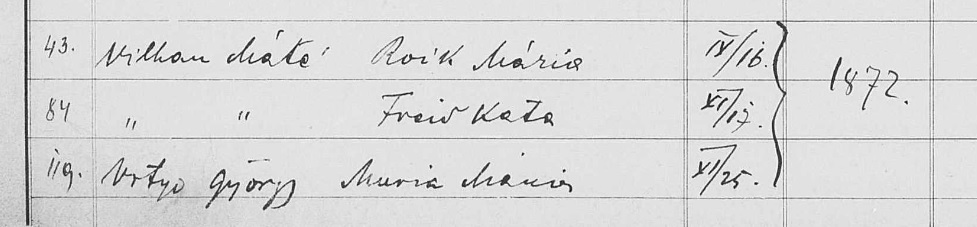 43. Vilhan Máté Roik Mária IX/16. 1872.
84 " " Freiv Kata XI/17.
119. Vrtyo György Muria Mária XI/25.